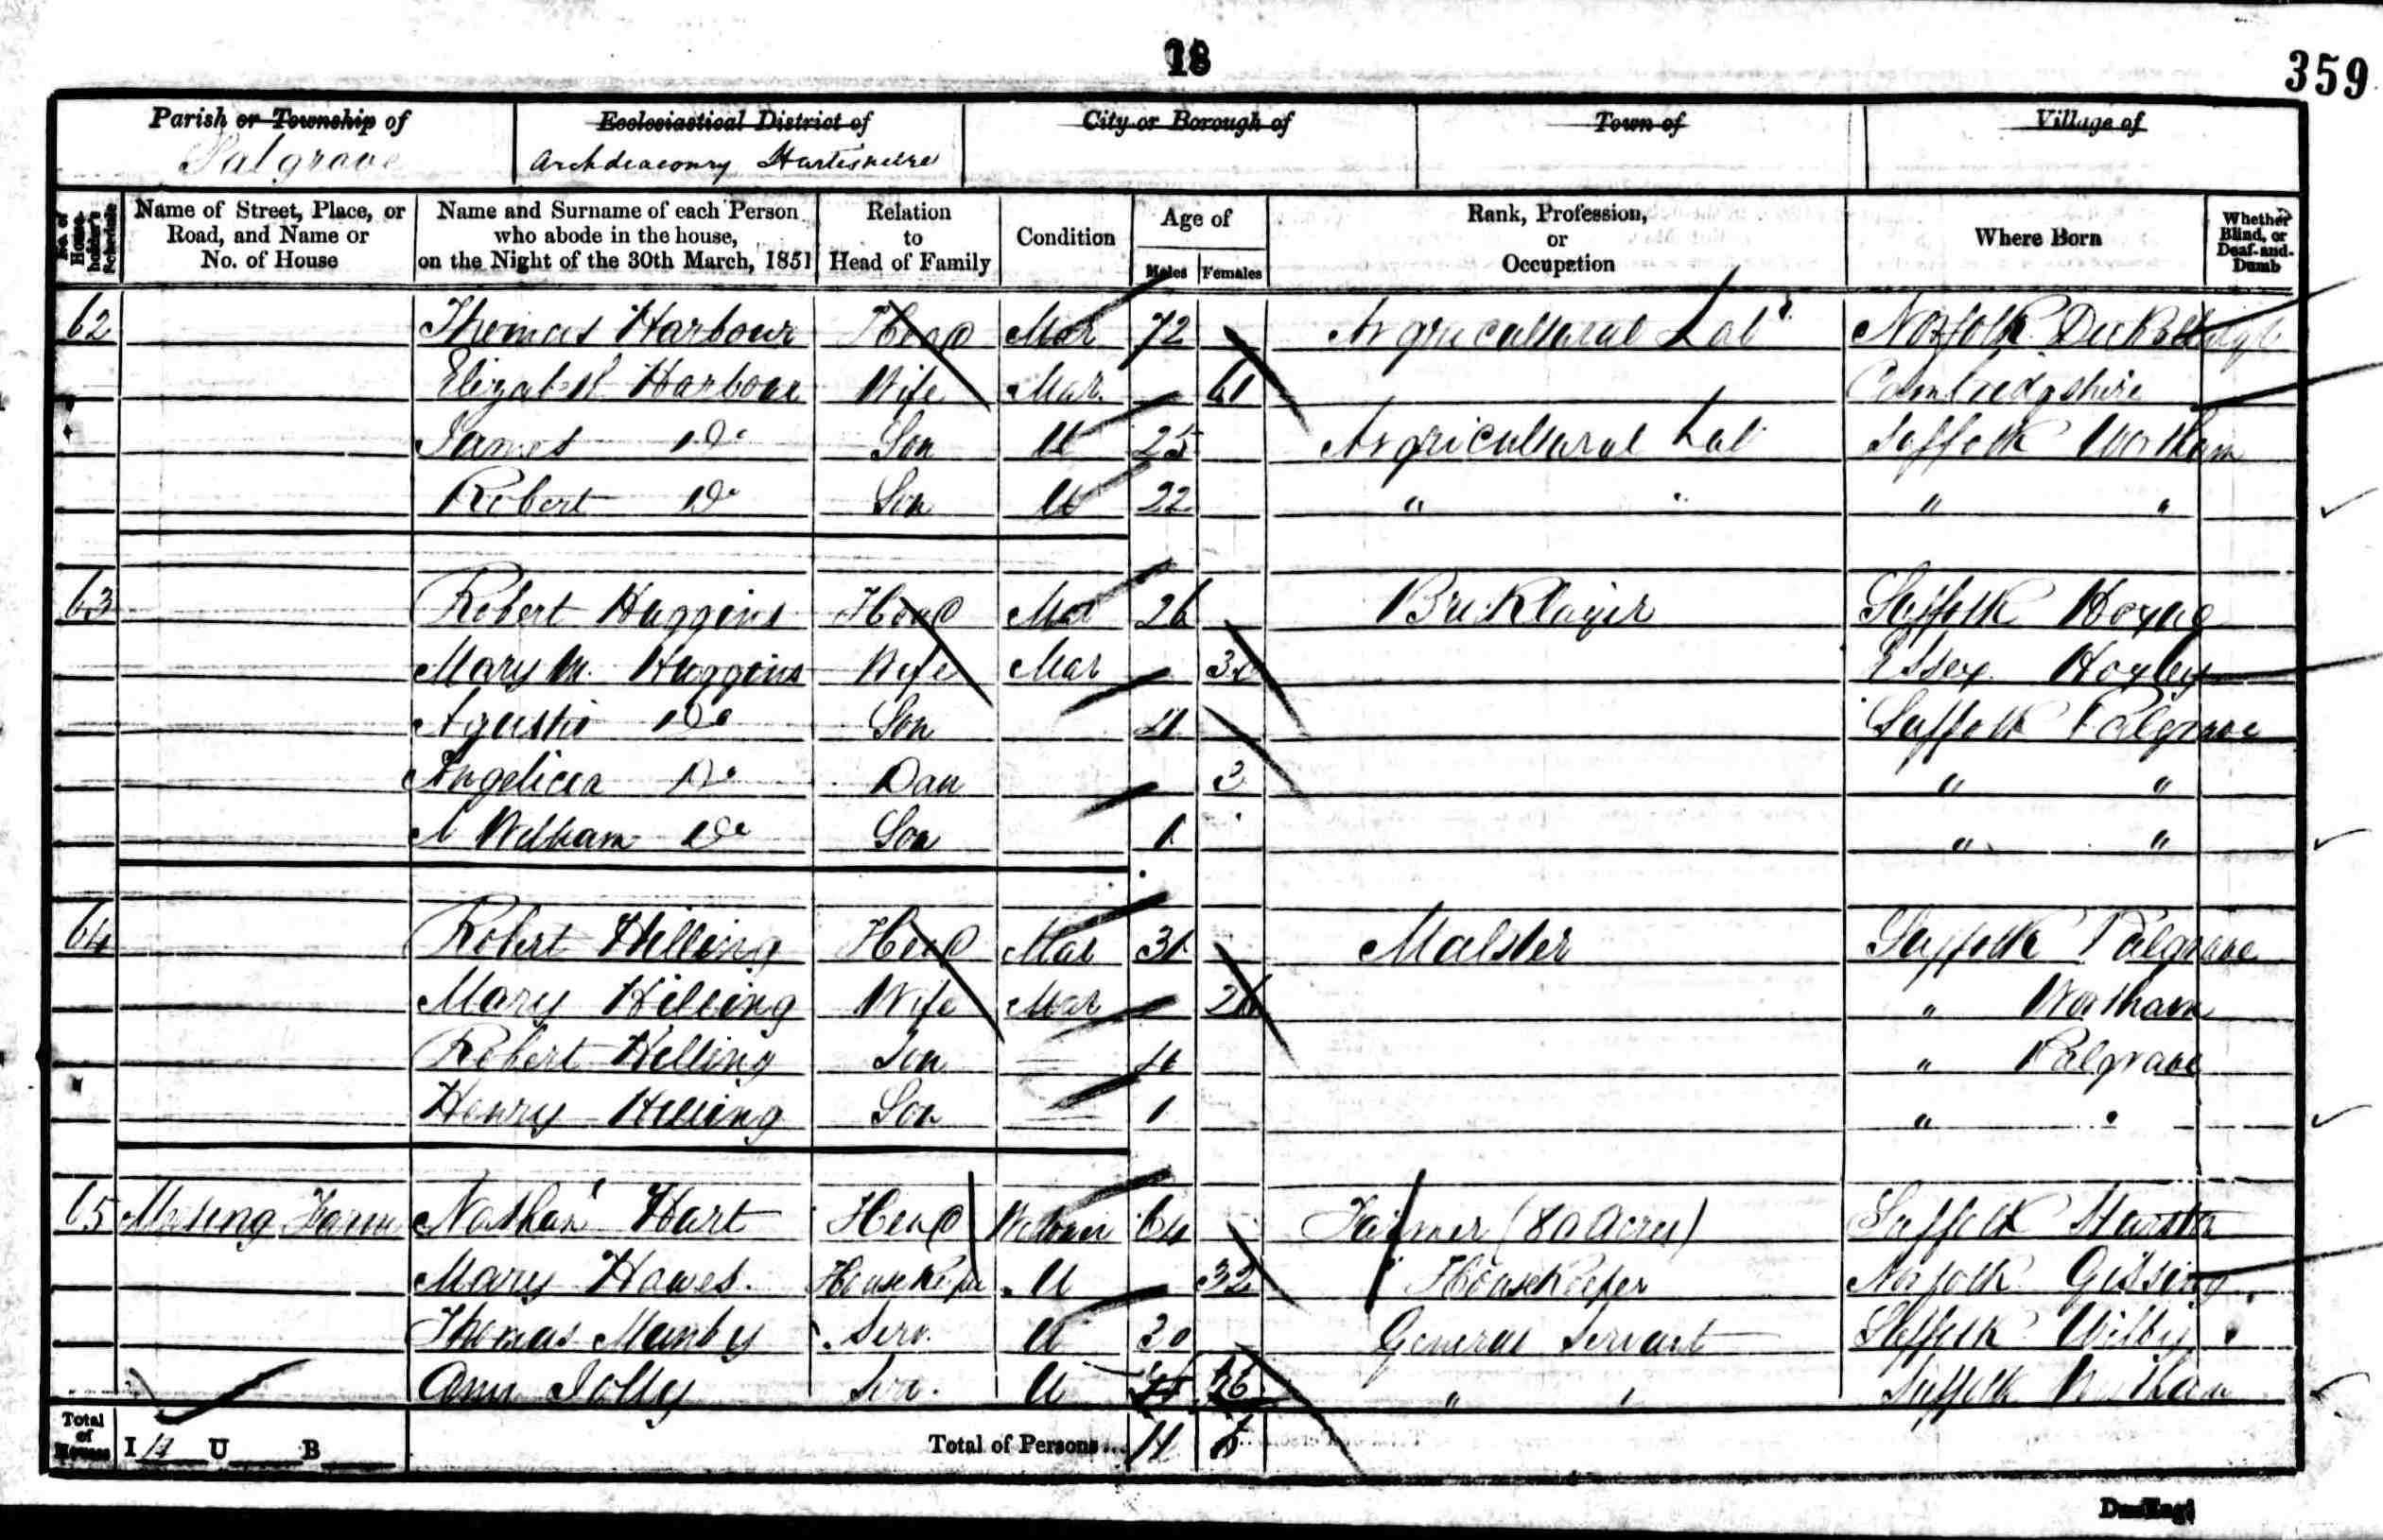 18
359
Parish or Township of Ecclesiastical District of City or Borough of Town of Village of
Palgrave Archdeaconry Hartismere
No. of House-holder's Schedule Name of Street, Place, or Road, and Name or No. of House Name and Surname of each Person who abode in the house, on the Night of the 30th March, 1851 Relation to Head of Family Condition Age of Males Females Rank, Profession, or Occupation Where Born Whether Blind, or Deaf-and-Dumb
62 Thomas Harbour Head Mar 72 Agricultural Labr Norfolk
Elizabeth Harbour Wife Mar 61 Cambridgshire
James Do Son U 25 Agricultural Lab Suffolk Wortham
Robert Do Son U 22 " " " "
63 Robert Huggins Head Mar 26 Bricklayer Suffolk Hoxne
Mary M. Huggins Wife Mar Essex
Do Son 4 Suffolk Palgrave
Angelica Do Dau 3 " "
William Do Son 1 " "
64 Robert Hilling Head Mar 31 Malster Suffolk Palgrave
Mary Hilling Wife Mar 26 " Wortham
Robert Hilling Son 4 " Palgrave
Henry Hilling Son 1 " "
65 Farm Nathan Hart Head Widower 64 Farmer (80 Acres) Suffolk
Mary Hawes. HouseKeper U 32 HouseKeeper Norfolk Gissing
Thomas Manby Serv. U 20 General Servant Suffolk Wilby
Ann Jolly Serv. U 16 " " Suffolk Wortham
Total of Houses I 4 U B Total of Persons... 11 6